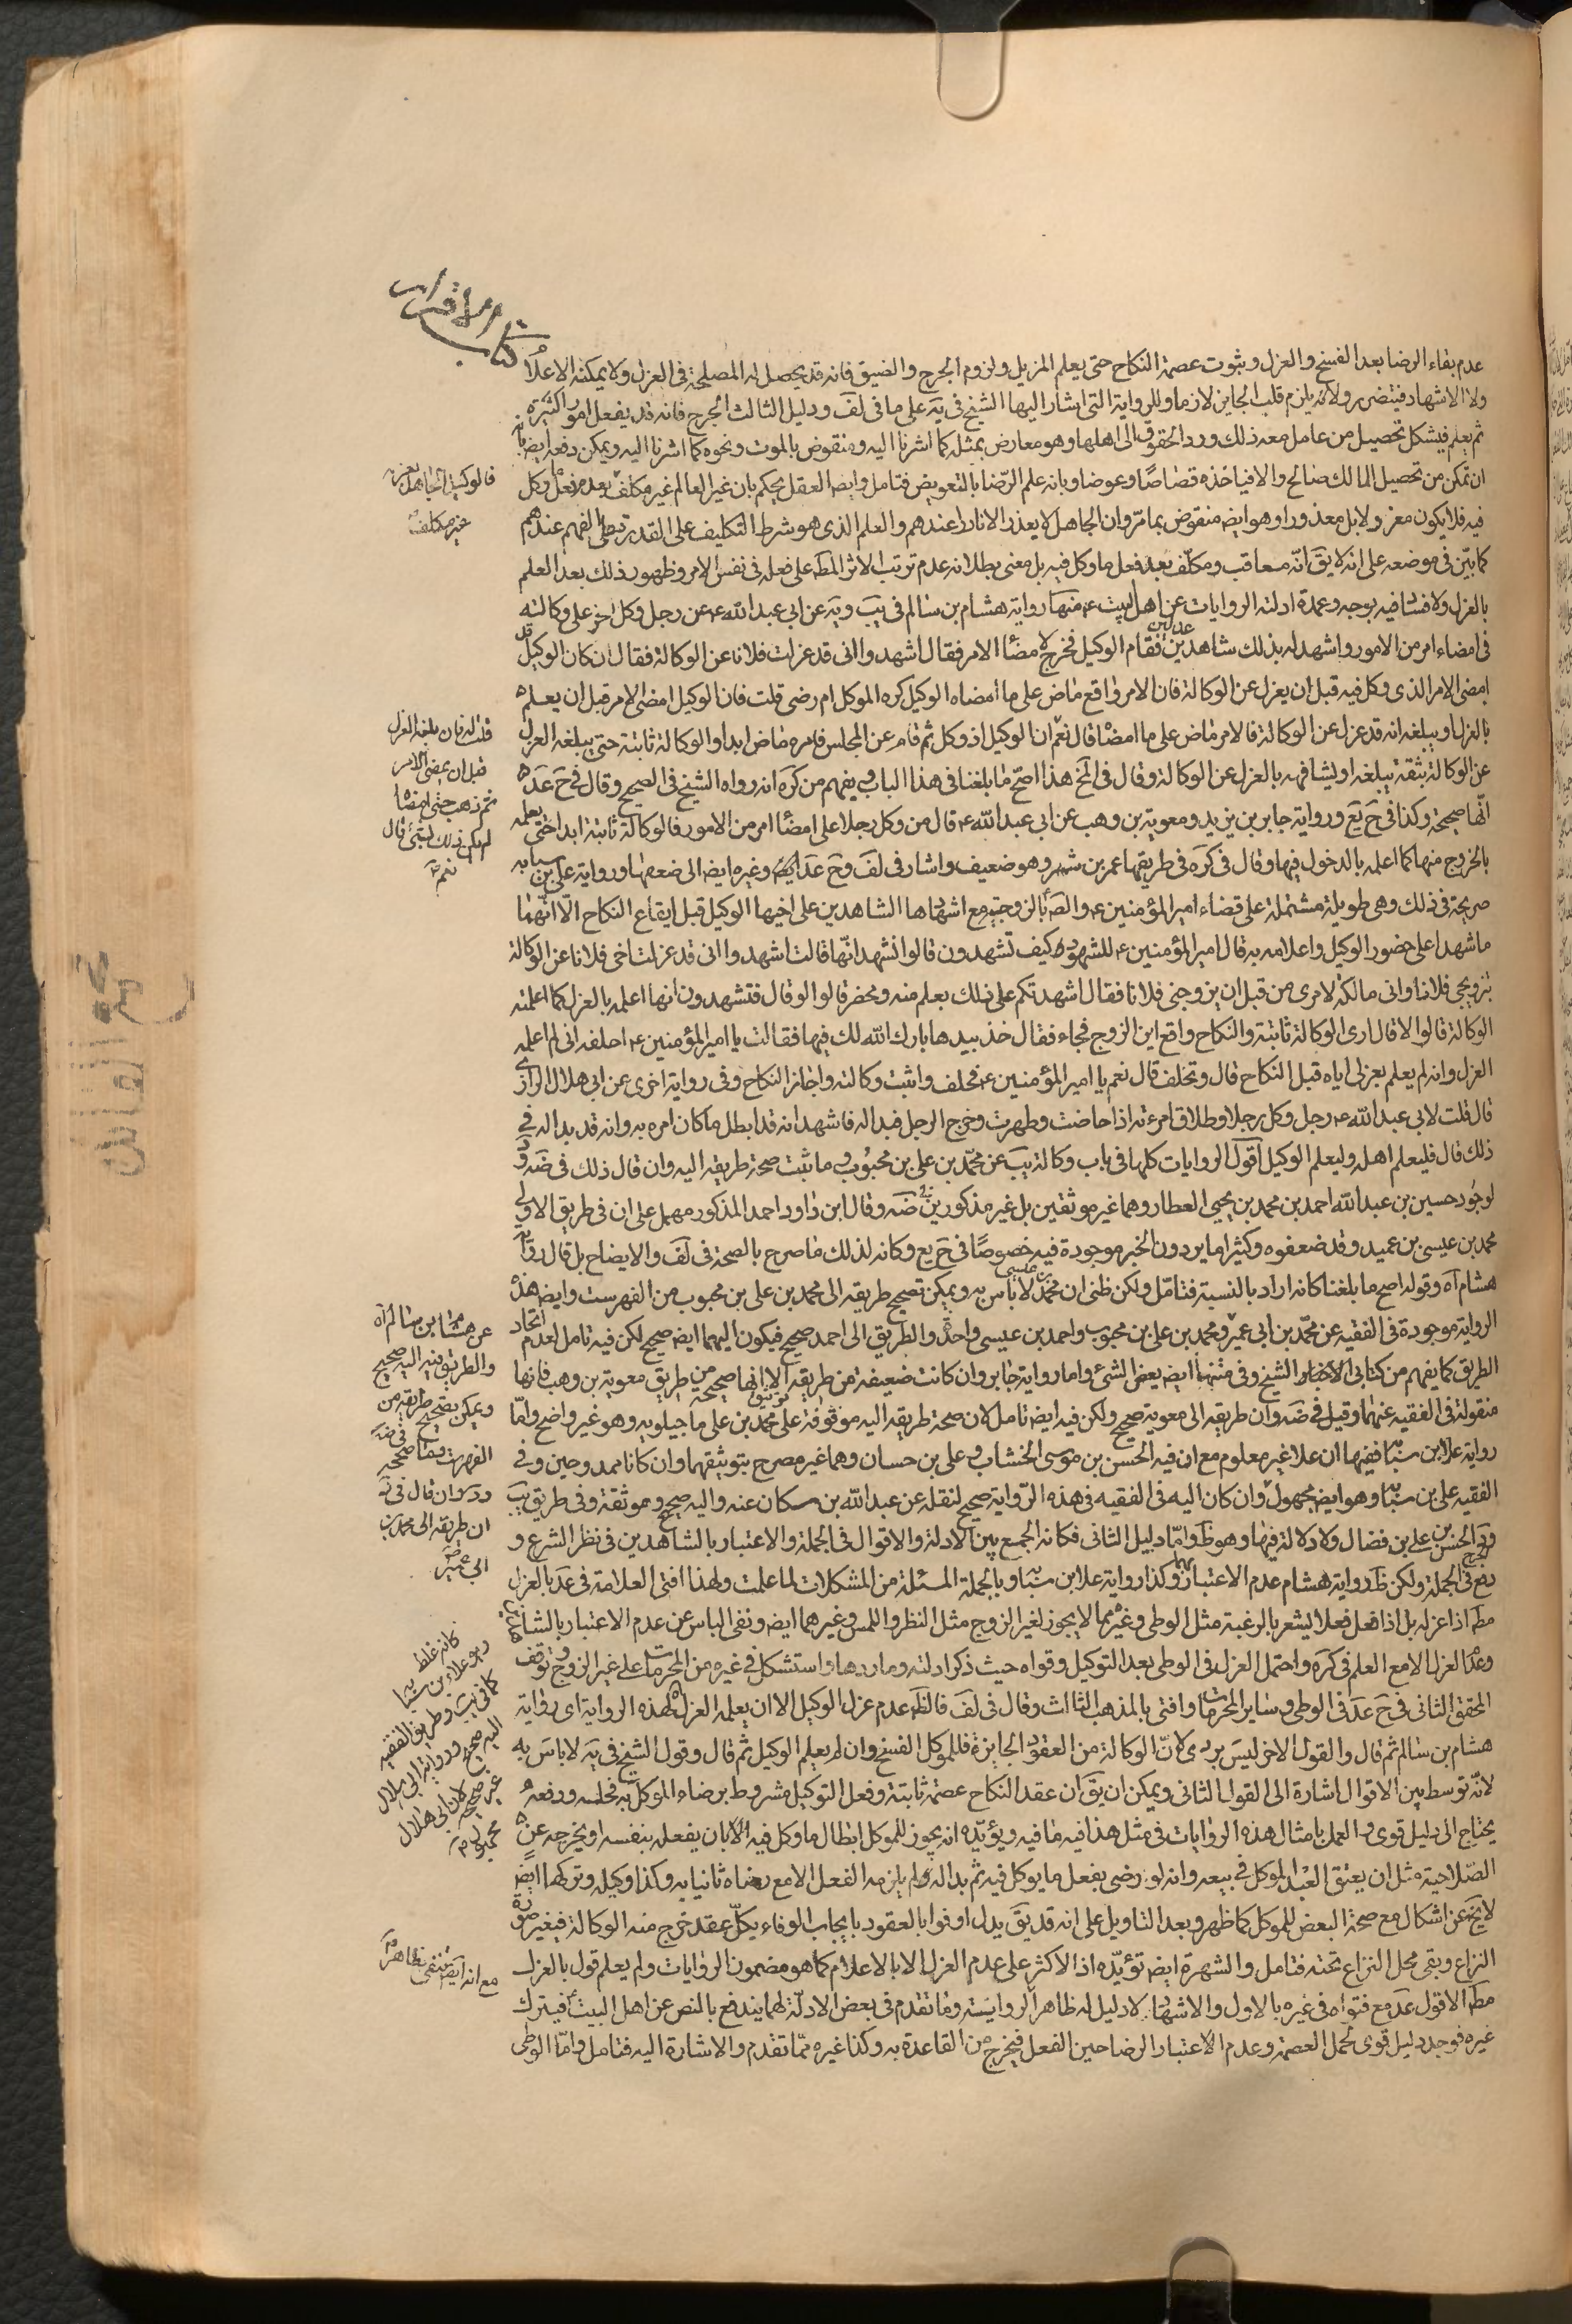 كتاب الاقرار
عدم بقاء الرضا بعد الفسخ والعزل وبثبوت عصمة النكاح حتى يعلم المزيل ولزوم الحرج والضيق فانه قد يحصل له المصلحة فى العزل ولا يمكنه الاعلام
ولا الاشهاد فيتضرر ولانه يلزم قلب الجايز لازما وللرواية التى اشار اليها الشيخ فى يَه على ما فى لفَ ودليل الثالث الحرج فانه قد يفعل امورا كثيرة
ثم يعلم فيشكل تحصيل من عامل معه ذلك ورد الحقوق الى اهلها وهو معارض بمثله كما اشرنا اليه ومنقوض بالموت ونحوه كما اشرنا اليه ويمكن دفعه ايض بانه
ان تمكن من تحصيل المالك صالح والا فياخذه قصاصًا وعوضا وبانه علم الرّضا بالتعويض فتامل وايض العقل يحكم بان غير العالم غير مكلف بعدم فعل ما وكل
فيه فلا يكون معزولا بل معذورا وهو ايض منقوض بما مرّ وان الجاهل لا يعذر الا نادرا عندهم والعلم الذى هو شرط التكليف على القدرة على الفهم عندهم
كما بيّن فى موضعه على انه لا يقَ انّه معاقب ومكلّف بعد فعل ما وكل فيه بل معنى بطلانه عدم ترتب الاثر المط على فعله فى نفس الامر وظهور ذلك بعد العلم
بالعزل ولا فساد فيه بوجه وعمدة ادلته الروايات عن اهل البيت ع منها رواية هشام بن سالم فى يبَ ويَه عن ابى عبد الله ع عن رجل وكل اخر على وكالته
فى امضاء امر من الامور واشهد له بذلك شاهدين عدلين فقام الوكيل فخرج لامضاء الامر فقال اشهدوا انى قد عزلت فلانا عن الوكالة فقال ان كان الوكيل قد
امضى الامر الذى وكل فيه قبل ان يعزل عن الوكالة فان الامر واقع ماض على ما امضاه الوكيل كره الموكل ام رضى قلت فان الوكيل امضى الامر قبل ان يعلم
بالعزل او يبلغه انه قد عزل عن الوكالة فالامر ماض على ما امضاه قال نعم ان الوكيل اذ وكل ثم قام عن المجلس فامره ماض ابدا والوكالة ثابتة حتى يبلغه العزل
عن الوكالة بثقة يبلغه او يشافهه بالعزل عن الوكالة وقال فى هذا اصحّ ما بلغنا فى هذا الباب ويفهم من كرَه انه رواه الشيخ فى الصحيح وقال فى حَ عدَ
انّها صحيحة وكذا فى حَ يعَ ورواية جابر بن يزيد ومعوية بن وهب عن ابى عبد الله ع قال من وكل رجلا على امضاء امر من الامور فالوكالة ثابتة ابدا حتى يعلمه
بالخروج منها كما اعلمه بالدخول فيها وقال فى كرَه فى طريقها عمر بن شمر وهو ضعيف واشار فى لفَ وحَ عدَ وغيره ايض الى ضعفها ورواية على بن سيابه
صريحة فى ذلك وهى طويلة مشتملة على قضاء امير المؤمنين ع بالزوجية مع اشهادها الشاهدين على اخيها الوكيل قبل ايقاع النكاح الّا انّهما
ما شهدا على حضور الوكيل واعلامه به قال امير المؤمنين ع للشهود كيف تشهدون قالوا نشهد انّها قالت اشهدوا انى قد عزلت اخى فلانا عن الوكالة
بتزويجى فلانا وانى مالكة لامرى من قبل ان يزوجنى فلانا فقال اشهدتكم على ذلك بعلم منه ومحضر قالوا لا قال فتشهدون انها اعلمه بالعزل كما اعلمته
الوكالة قالوا لا قال ارى الوكالة ثابتة والنكاح واقع اين الزوج فجاء فقال خذ بيدها بارك الله لك فيها فقالت يا امير المؤمنين ع احلفه انى لم اعلمه
العزل وانه لم يعلم بعزلى اياه قبل النكاح قال وتحلف قال نعم يا امير المؤمنين ع فحلف واثبت وكالته واجاز النكاح وفى رواية اخرى عن ابى هلال الرازى
قال قلت لابى عبد الله ع رجل وكل رجلا وطلاق امرءته اذا حاضت وطهرت وخرج الرجل فبدا له فاشهد انه قد ابطل ما كان امره به وانه قد بدا له فى
ذلك قال فليعلم اهله وليعلم الوكيل اقول الروايات كلها فى باب وكالة يبَ عن محمّد بن على بن محبوب وما ثبت صحة طريقه اليه وان قال ذلك فى ضَه
لوجود حسين بن عبد الله احمد بن محمد بن يحيى العطار وهما غير موثقين بل غير مذكورين فى ضَه وقال ابن داود احمد المذكور مهمل على ان فى طريق الاولى
محمد بن عيسى بن عبيد وقد ضعفوه وكثيرا ما يردون الخبر موجودة فيه خصوصًا فى حَ يع وكانه لذلك ما صرح بالصحة فى لفَ والايضاح بل قال رواية
هشام آه وقوله اصح ما بلغنا كانه اراد بالنسبة فتامّل ولكن ظنى ان محمد بن عيسى لا باس به ويمكن تصحيح طريقه الى محمد بن على بن محبوب من الفهرست وايض هذه
الرواية موجودة فى الفقيه عن محمّد بن ابى عمير ومحمد بن على بن محبوب واحمد بن عيسى واحد والطريق الى احمد صحيح فيكون اليهما ايض صحيح لكن فيه تامل لعدم اتحاد
الطريق كما يفهم من كتابى الاخبار الشيخ وفى متنها ايض بعض الشئ واما رواية جابر وان كانت ضعيفة من طريقه الا انها صحيحة من طريق معوية بن وهب فانها
منقولة فى الفقيه عنهما وقيل فى ضَه وان طريقه الى معوية صحيح ولكن فيه ايض تامل لان صحة طريقه اليه موقوفة على توثيق محمد بن على ماجيلويه وهو غير واضح وامّا
رواية علا بن سيابه ففيها ان علا غير معلوم مع ان فيه الحسن بن موسى الخشاب وعلى بن حسان وهما غير مصرح بتوثيقهما وان كانا ممدوحين وفى
الفقيه على بن سيابه وهو ايض مجهول وان كان اليه فى الفقيه فى هذه الرّواية صحيح لنقله عن عبد الله بن مسكان عنه واليه صحيح وموثقة وفى طريق يبَ
الحسن بن على بن فضال ولا دلالة فيها وهو ظَ وامّا دليل الثانى فكانه الجمع بين الادلة والاقوال فى الجملة والاعتبار بالشاهدين فى نظر الشرع و
رفع الحرج فى الجملة ولكن ظَ رواية هشام عدم الاعتبار بهما وكذا رواية علا بن سيابه وبالجملة المسئلة من المشكلات لما علمت ولهذا افتى العلامة فى عدَ بالعزل
مط اذا عزله بل اذا فعل فعلا يشعر بالرغبة مثل الوطى وغيره مما لا يجوز لغير الزوج مثل النظر واللمس وغيرهما ايض ونفى الباس عن عدم الاعتبار بالشاهد
وعدم العزل الا مع العلم فى كرَه واحتمل العزل فى الوطى بعد التوكيل وقواه حيث ذكر ادلته وما ردها واستشكل فى غيره من المحرمات على غير الزوج وتوقف
المحقق الثانى فى حَ عدَ فى الوطى وساير المحرمات وافتى بالمذهب الثالث وقال فى لفَ فالظَ عدم عزل الوكيل الا ان يعلمه العزل لهذه الرواية اى رواية
هشام بن سالم ثم قال والقول الاخر ليس بردى لانّ الوكالة من العقود الجايزة فللموكل الفسخ وان لم يعلم الوكيل ثم قال وقول الشيخ فى يَه لا باسَ به
لانّه توسط بين الاقوال اشارة الى القول الثانى ويمكن ان يقَ ان عقد النكاح عصمة ثابتة وفعل التوكيل مشروط برضاء الموكل به فحله ورفعه
يحتاج الى دليل قوى والعمل بامثال هذه الروايات فى مثل هذا فيه ما فيه ويؤيّده انه يجوز للموكل ابطال ما وكل فيه الا بان يفعله بنفسه او يخرجه عن
الصّلاحية مثل ان يعتق العبد الموكل فى بيعه وانه لو رضى بفعل ما يوكل فيه ثم بدا له ولم يلزمه الفعل الا مع رضاه ثانيا به وكذا وكيله وتركهما ايض
لا يخَ عن اشكال مع صحة البعض للموكل كما ظهر وبعد التاويل على انه قد يقَ يدل اوفوا بالعقود بايجاب الوفاء بكلّ عقد خرج منه الوكالة فى غير صورة
النزاع وبقى محل النزاع تحته فتامل والشهرة ايض تؤيّده اذ الاكثر على عدم العزل الا بالاعلام كما هو مضمون الروايات ولم يعلم قول بالعزل
مط الا قول عدَ مع فتواه فى غيره بالاول والاشهاد لا دليل له ظاهر الرواية وما تقدم فى بعض الادلّة لهما يندفع بالنص عن اهل البيت فيترك
غيره فوجد دليل قوى لحمل العصمة وعدم الاعتبار الرضا حين الفعل فيخرج من القاعدة به وكذا غيره ممّا تقدم والاشارة اليه فتامل وامّا الوطى
فالوكيل الجاهل بعزله
غير مكلف
قلت له فان بلغه العزل
قبل ان يمضى الامر
ثم ذهب حتى امضاه
لم يكن ذلك بشئ قال
نعم
عن هشام بن سالم آه
والطريق فيه اليه صحيح
ويمكن تصحيح طريقه من
الفهرست
ان طريقه الى محمد بن
ابى عمير
كانه غلط
وهو علاء بن سيابه
كما فى يب وطريق الفقيه
اليه صحيح ورواية ابى هلال
غير صحيحة لان ابى هلال
مجهول
مع انه ايض منتفى ظاهرا